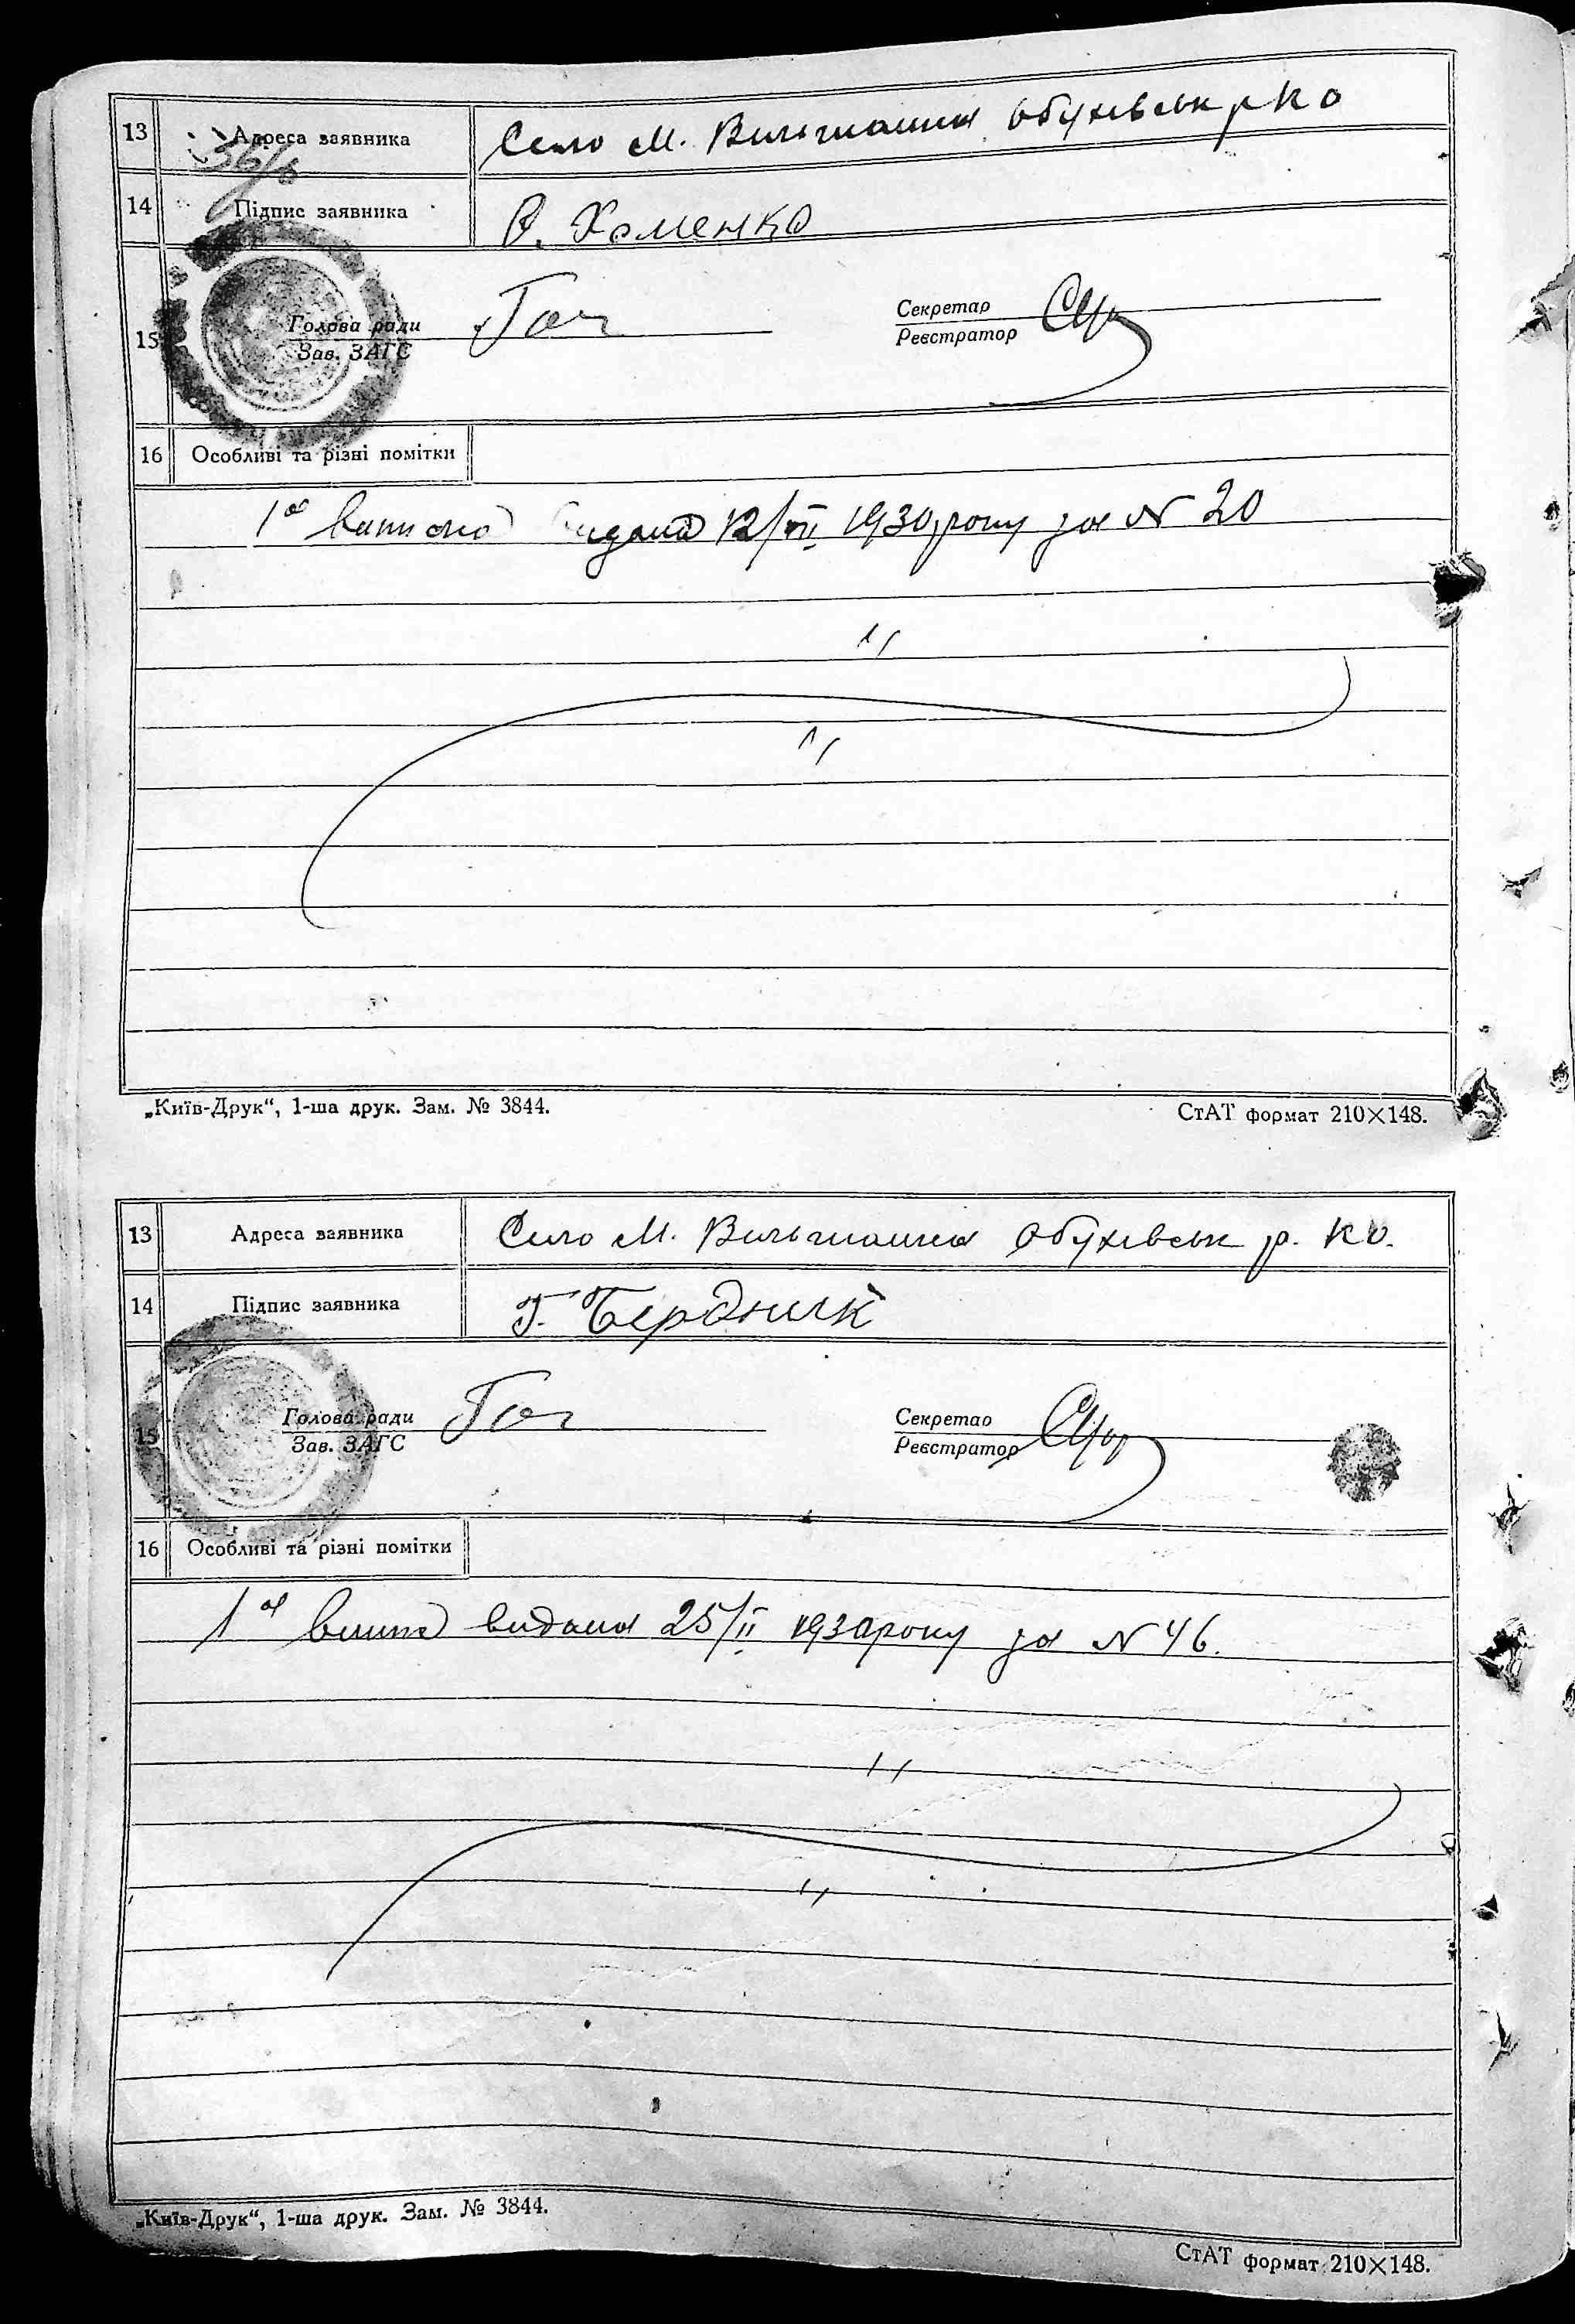 13 Адреса заявника Село М. Вильшанка Обухівськ р КО
36/6
14 Підпис заявника О. Хоменко
15 Голова ради Секретар
Зав. ЗАГС Реєстратор
16 Особливі та різні помітки
1а видана 12/VII 1930 року за № 20
"
"
„Київ-Друк“, 1-ша друк. Зам. № 3844. СтАТ формат 210×148.
13 Адреса заявника Село М. Вильшанка Обухівськ р. КО.
14 Підпис заявника Г. Бердник
15 Голова ради Секретар
Зав. ЗАГС Реєстратор
16 Особливі та різні помітки
1а видана 25/II 1930 року за № 46.
"
"
„Київ-Друк“, 1-ша друк. Зам. № 3844.
СтАТ формат 210×148.